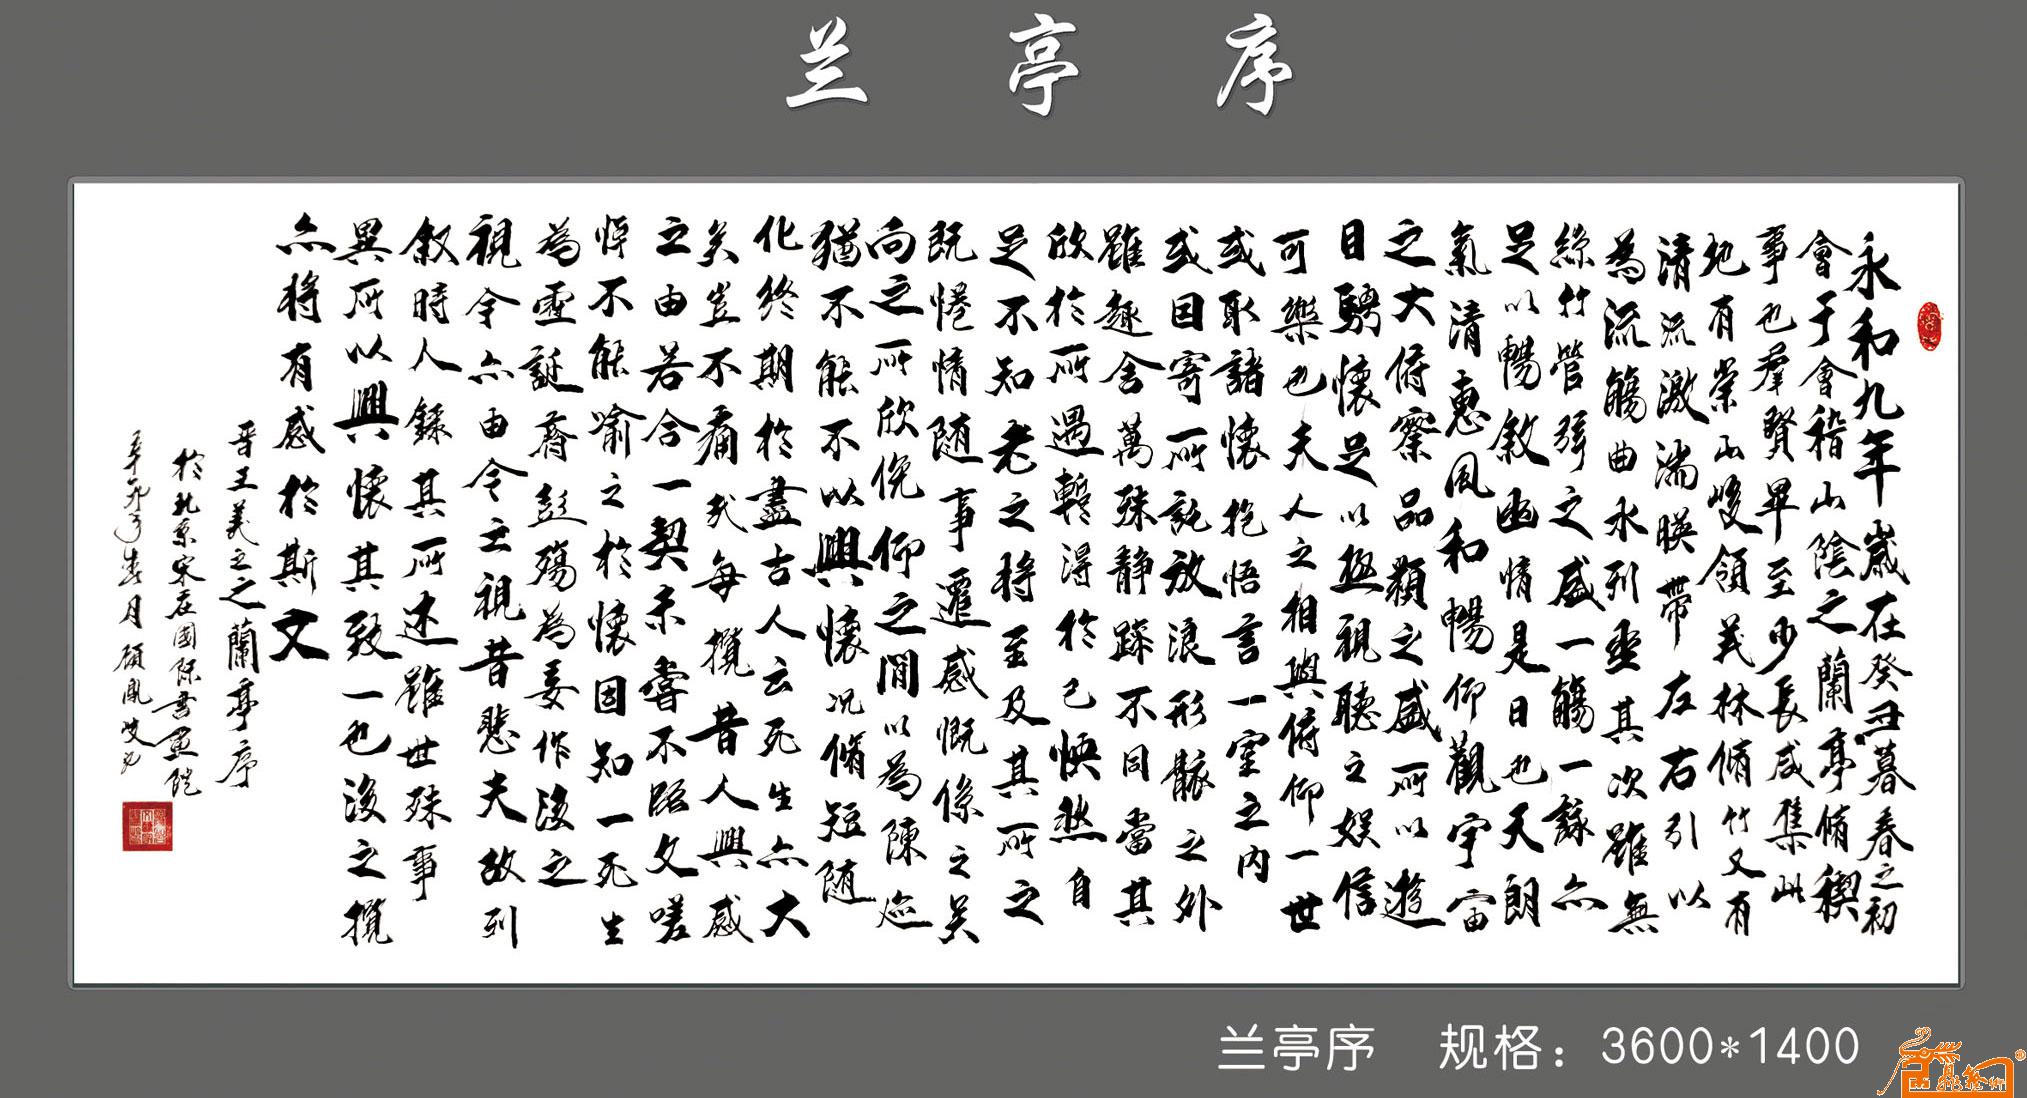 兰亭序
永和九年歲在癸丑暮春之初
會于會稽山陰之蘭亭脩稧
事也羣賢畢至少長咸集此
地有崇山峻領茂林脩竹又有
清流激湍暎帶左右引以
為流觴曲水列坐其次雖無
絲竹管弦之盛一觴一詠亦
足以暢敘幽情是日也天朗
氣清惠風和暢仰觀宇宙
之大俯察品類之盛所以遊
目騁懷足以極視聽之娛信
可樂也夫人之相與俯仰一世
或取諸懷抱悟言一室之內
或因寄所託放浪形骸之外
雖趣舍萬殊靜躁不同當其
欣於所遇暫得於己怏然自
足不知老之將至及其所之
既惓情随事遷感慨係之矣
向之所欣俛仰之閒以為陳迹
猶不能不以興懷況脩短随
化終期於盡古人云死生亦大
矣豈不痛哉每攬昔人興感
之由若合一契未嘗不臨文嗟
悼不能喻之於懷固知一死生
為虛誕齊彭殤為妄作後之
視今亦由今之視昔悲夫故列
敘時人錄其所述雖世殊事
異所以興懷其致一也後之攬
亦將有感於斯文
晋王羲之之蘭亭序
於北京宋庄國際書画院
春月顾凤
兰亭序 规格：3600*1400